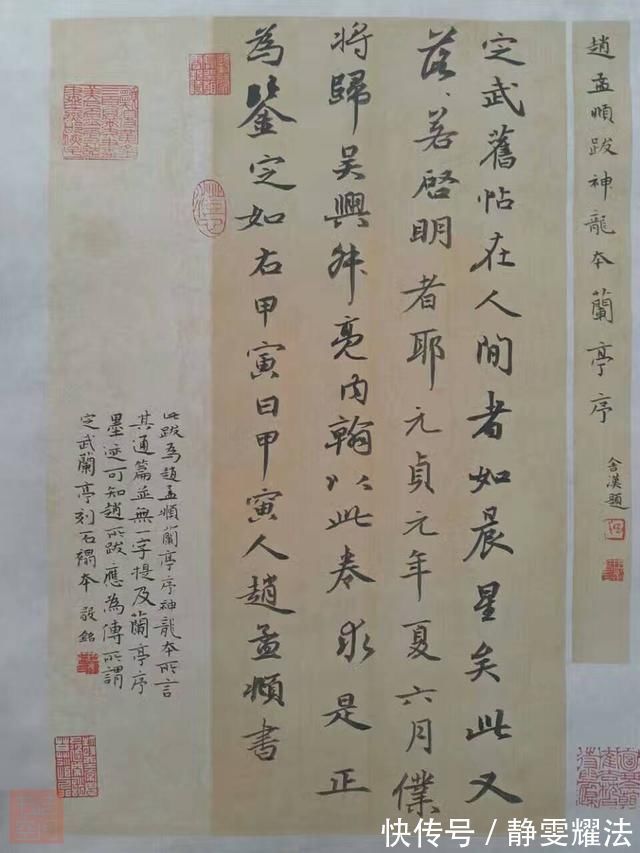 趙孟頫跋神龍本蘭亭序
含漢題
定武舊帖在人間者如晨星矣此又
落落若啓明者耶元貞元年夏六月僕
將歸吳興叔亮內翰以此卷求是正
為鑒定如右甲寅日甲寅人趙孟頫書
此跋為趙孟頫蘭亭序神龍本所言
其通篇並無一字提及蘭亭序
墨迹可知趙所跋應為傳所謂
定武蘭亭刻石禢本 敬銘
快传号／静雯耀法